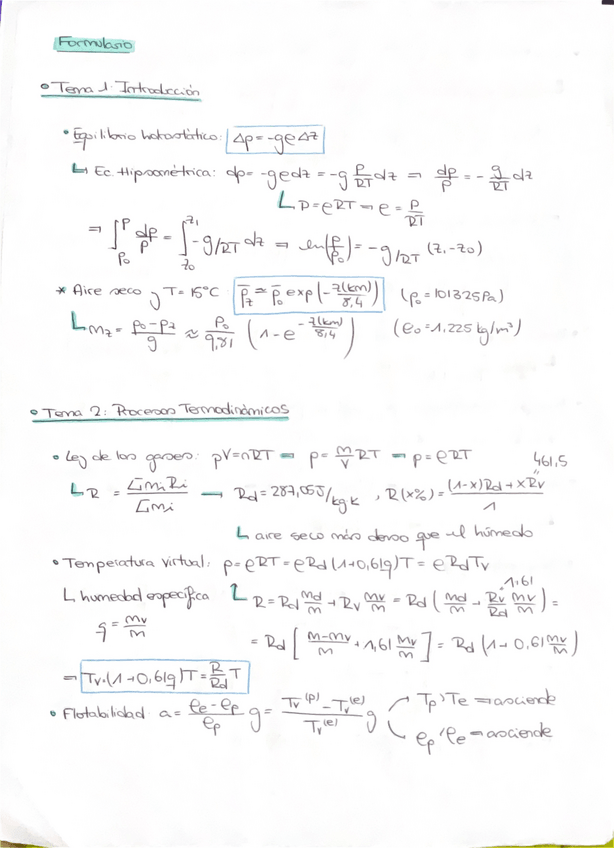 Formulario
• Tema 1: Introducción
• Equilibrio hidrostático: Δp = -gρΔz
↳ Ec. Hipsométrica: dp = -gρdz = -g p/RT dz ⇒ dp/p = - g/RT dz
↳ p = ρRT → ρ = p/RT
⇒ ∫_{p₀}^{p} dp/p = ∫_{z₀}^{z₁} -g/RT dz ⇒ ln(p/p₀) = -g/RT (z₁-z₀)
* Aire seco y T = 15°C p̄_z ≃ p̄₀ exp(- z(km)/8,4) (p₀ = 101325 Pa)
↳ M_z = (p₀ - p_z)/g ≈ p₀/9,81 (1 - e^{- z(km)/8,4}) (ρ₀ = 1,225 kg/m³)
• Tema 2: Procesos Termodinámicos
• Ley de los gases: pV = nRT → p = m/V RT → p = ρRT 461,5
↳ R = Σ mᵢRᵢ / Σ mᵢ → Rd = 287,05 J/kg·K , R(x%) = ((1-x)Rd + xRv)/1
↳ aire seco más denso que el húmedo
• Temperatura virtual: p = ρRT = ρRd(1+0,61q)T = ρRdTv
↳ humedad específica ↳ R = Rd md/m + Rv mv/m = Rd (md/m + Rv/Rd mv/m) = 1,61
q = mv/m = Rd [(m-mv)/m + 1,61 mv/m] = Rd (1+0,61 mv/m)
⇒ Tv·(1+0,61q)T = R/Rd T
• Flotabilidad: a = (ρe - ρp)/ρp g = (Tv^(p) - Tv^(e))/Tv^(e) g Tp > Te ⇒ asciende
ρp < ρe ⇒ asciende